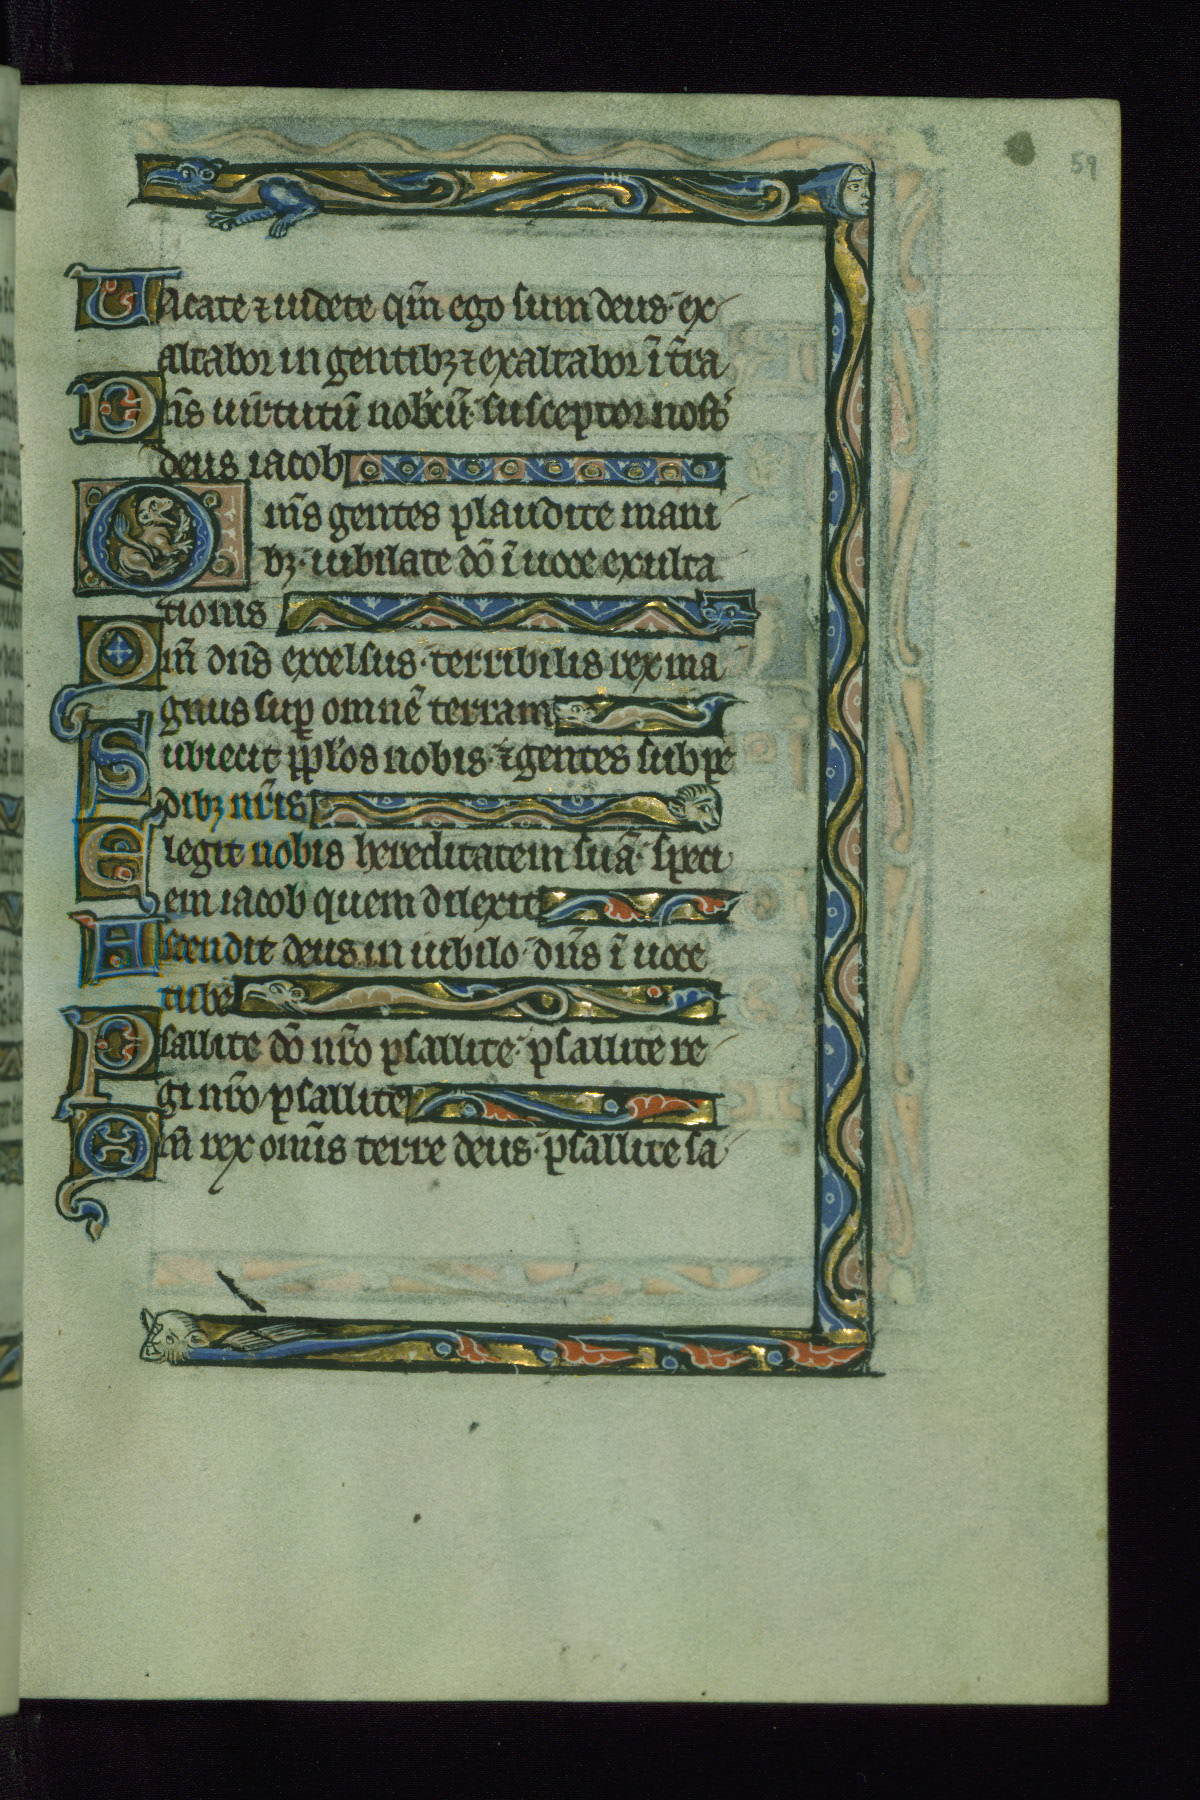 59
Uacate ⁊ uidete qm̄ ego sum deus· ex
altabor in gentibꝫ ⁊ exaltabor ī t̄ra
Dn̄s uirtutū nobcū· susceptor nost̉
deus iacob
Om̄s gentes plaudite mani
bꝫ· iubilate dō ī uoce exulta
tionis
Qm̄ dn̄s excelsus· terribilis rex ma
gnus suꝑ omnē terram
Subiecit ppl̄os nobis· ⁊ gentes sub pe
dibꝫ nr̄is
Elegit nobis hereditatem suā· speci
em iacob quem dilexit
Ascendit deus in iubilo· dn̄s ī uoce
tube
Psallite dō nr̄o psallite· psallite re
gi nr̄o psallite
Qm̄ rex omīs terre deus· psallite sa